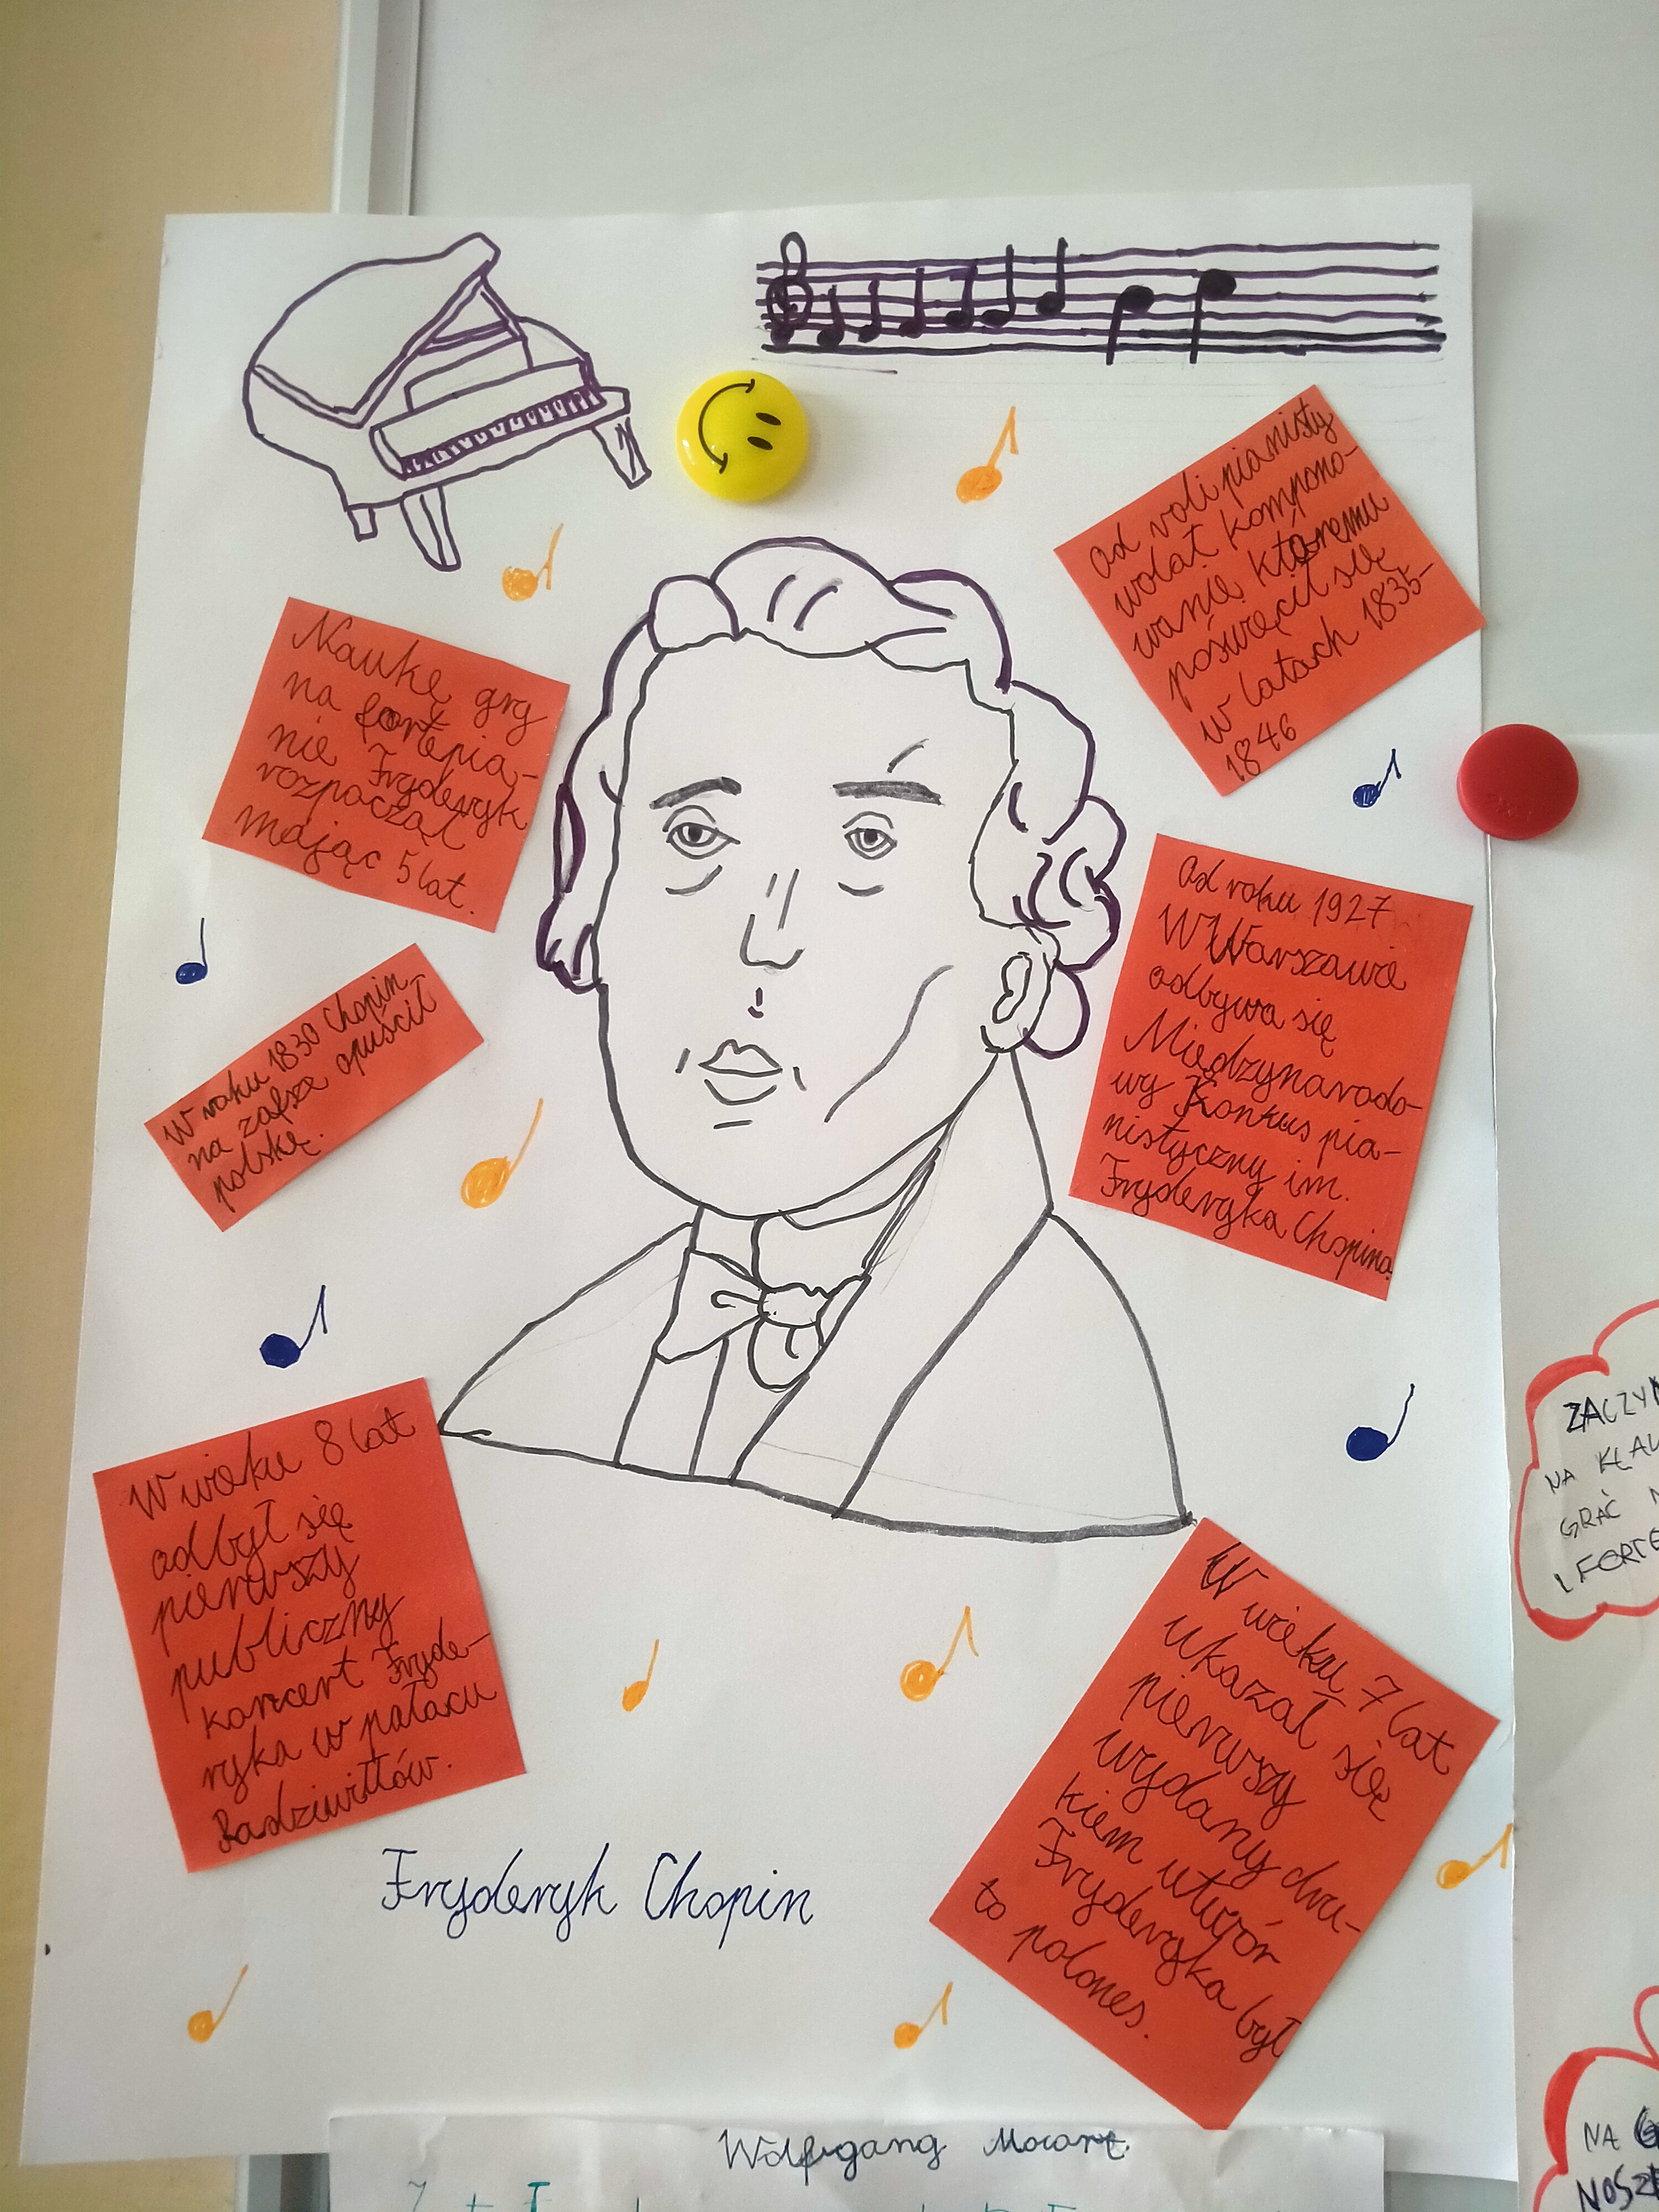 od roli pianisty
wolał kompono-
wanię któremu
poświęcił się
w latach 1835-
1846
Naukę gry
na fortepia-
nie Fryderyk
rozpoczął
mając 5 lat.
Od roku 1927
W Warszawie
odbywa się
Międzynarodo-
wy Konkus pia-
nistyczny im.
Fryderyka Chopina
W roku 1830 Chopin
na zafsze opuścił
polskę.
W wieku 8 lat
odbył się
pierwszy
publiczny
koncert Fryde-
ryka w pałacu
Radziwiłłów.
W wieku 7 lat
ukazał się
pierwszy
wydany dru-
kiem utwór
Fryderyka był
to polones.
Fryderyk Chopin
ZACZYN
NA KLAW
GRAĆ
I FORTE
NA
NOSZ
Wolfgang Mozart